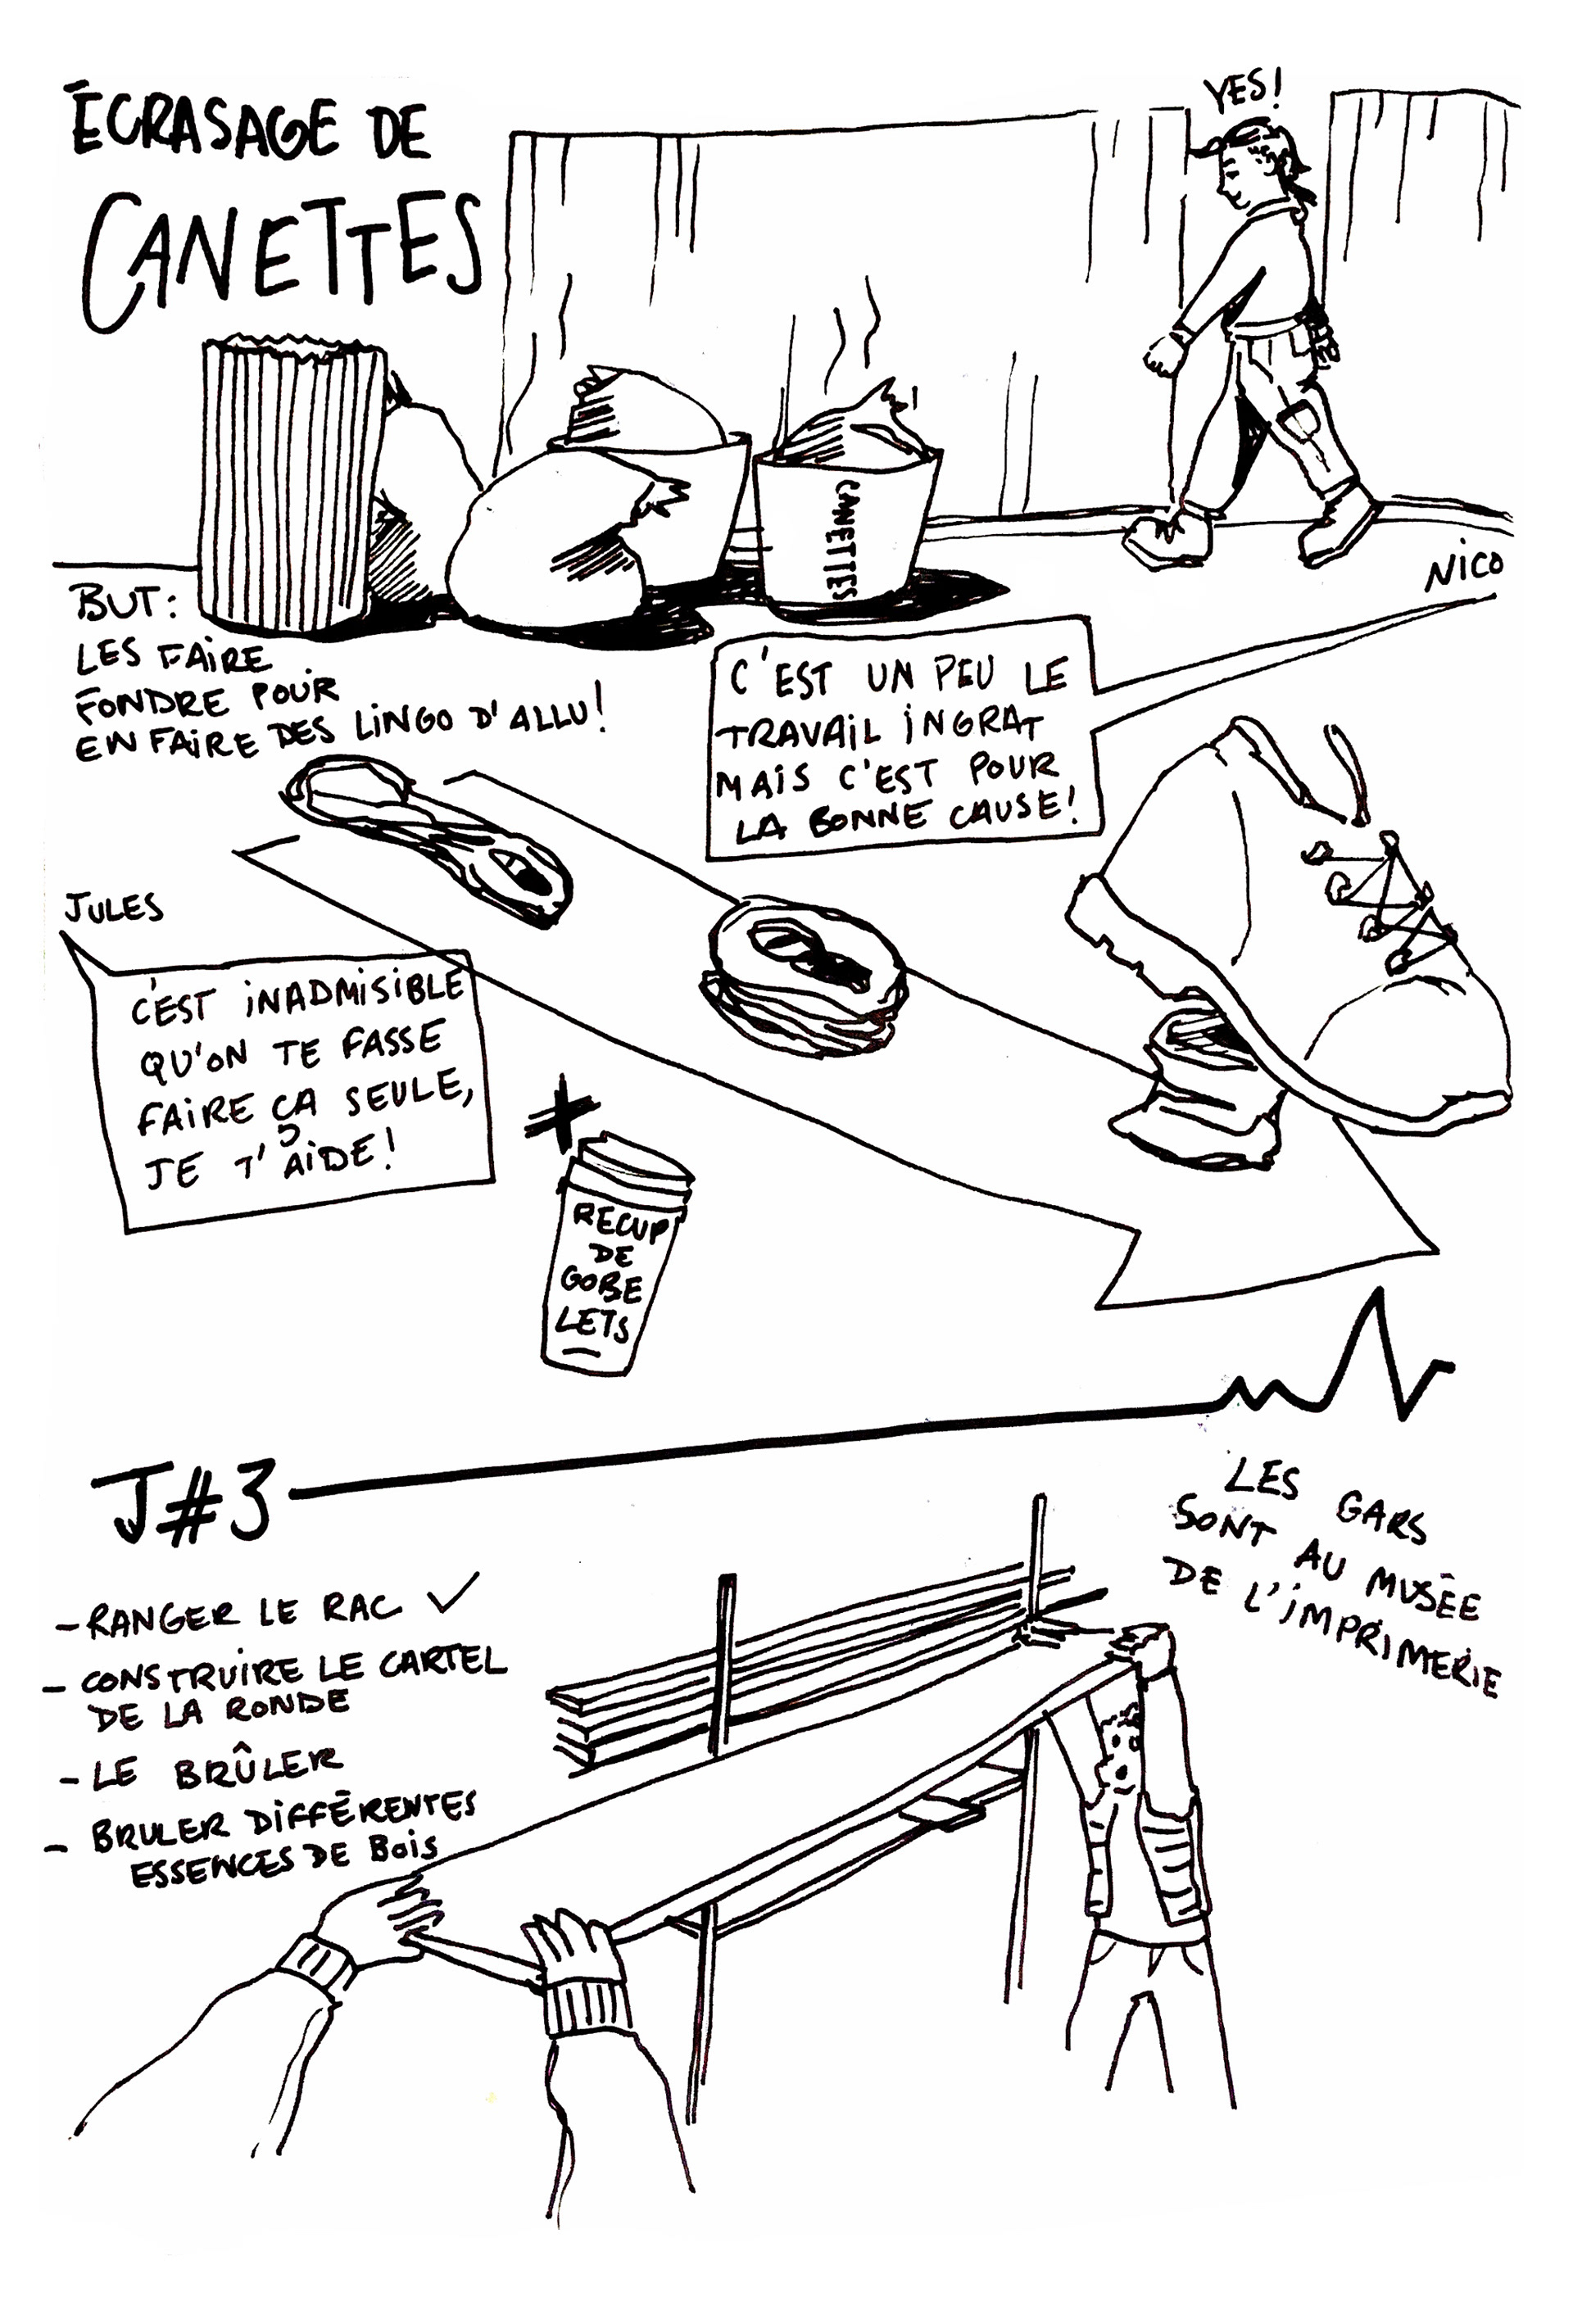 ÉCRASAGE DE
CANETTES
YES!
CANETTES
NICO
BUT:
LES FAIRE
FONDRE POUR
EN FAIRE DES LINGO D'ALLU!
C'EST UN PEU LE
TRAVAIL INGRAT
MAIS C'EST POUR
LA BONNE CAUSE!
JULES
C'EST INADMISIBLE
QU'ON TE FASSE
FAIRE ÇA SEULE,
JE T'AIDE!
+
RECUP
DE
GOBE
LETS
J#3
LES GARS
SONT AU MUSÉE
DE L'IMPRIMERIE
- RANGER LE RAC ✓
- CONSTRUIRE LE CARTEL
DE LA RONDE
- LE BRÛLER
- BRULER DIFFÉRENTES
ESSENCES DE BOIS